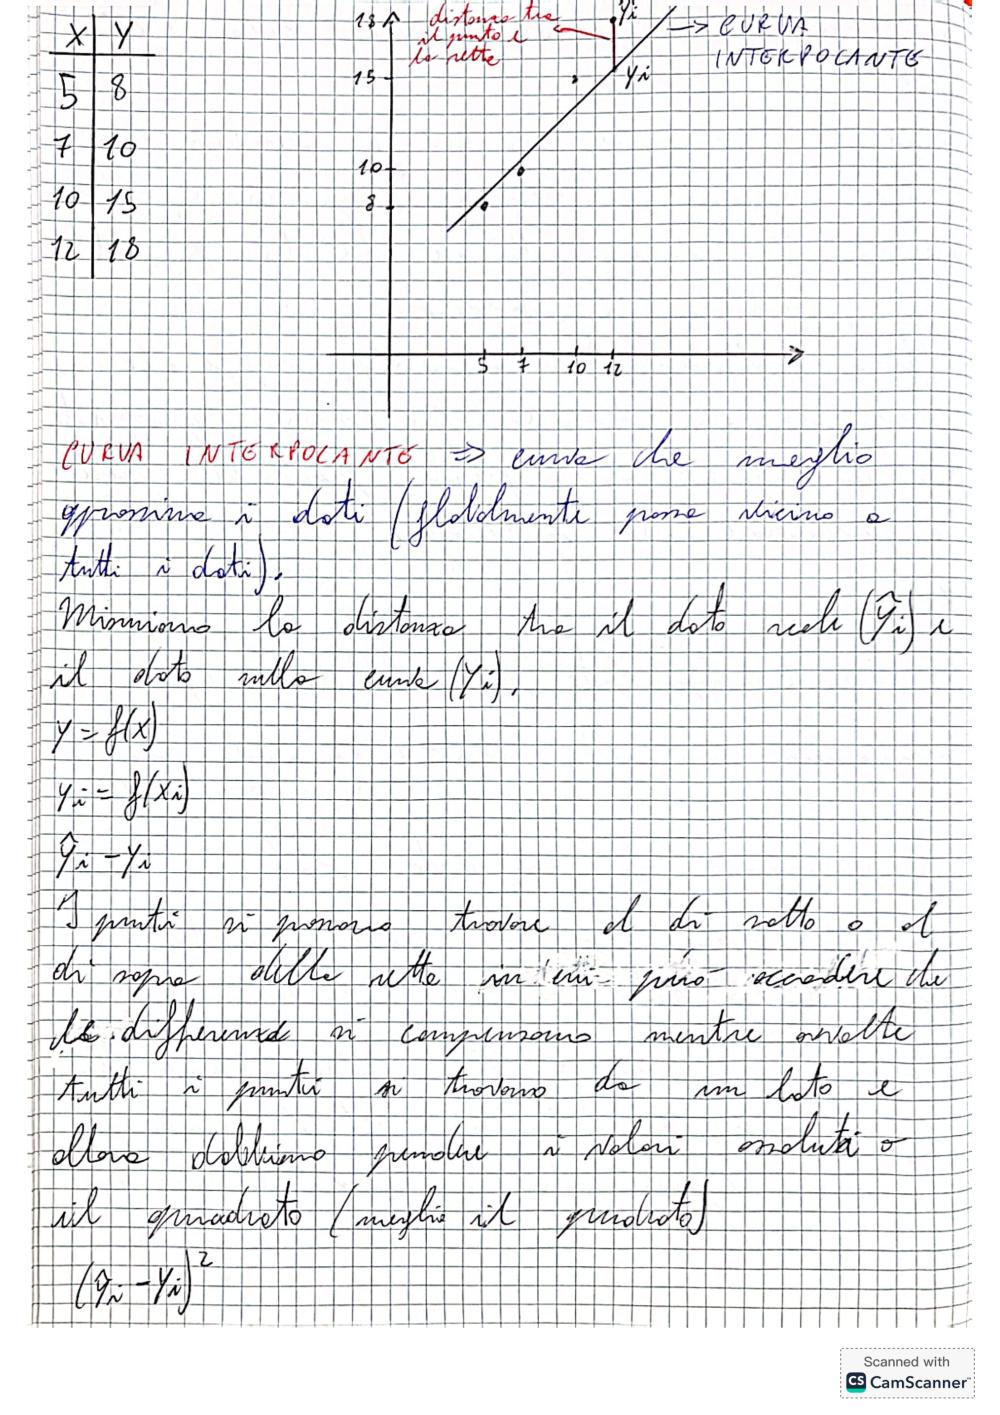 X Y
5 8
7 10
10 15
12 18
18
15
10
8
5 7 10 12
distanza tra
il punto e
la retta
ŷi
yi
→ CURVA
INTERPOLANTE
CURVA INTERPOLANTE ⇒ curva che meglio
approssima i dati (globalmente passa vicino a
tutti i dati).
Misuriamo la distanza tra il dato reale (ŷi) e
il dato sulla curva (yi).
y = f(x)
yi = f(xi)
ŷi - yi
I punti si possono trovare al di sotto o al
di sopra della retta in cui può accadere che
le differenze si compensano mentre avvolte
tutti i punti si trovano da un lato e
allora dobbiamo prendere i valori assoluti o
il quadrato (meglio il quadrato)
(ŷi - yi)²
Scanned with
CS CamScanner